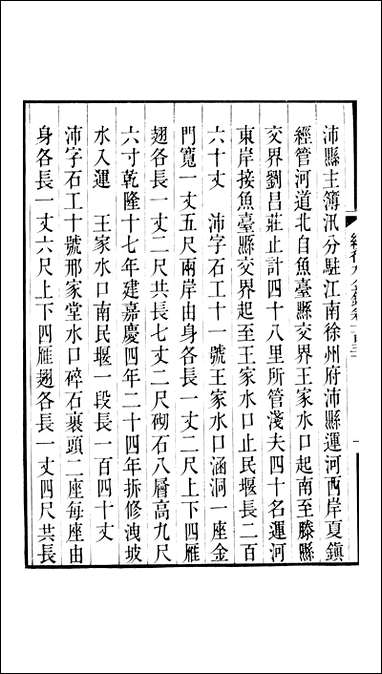 沛縣主簿汛分駐江南徐州府沛縣運河西岸夏鎮
經管河道北自魚臺縣交界王家水口起南至滕縣
交界劉昌莊止計四十八里所管淺夫四十名運河
東岸接魚臺縣交界起至王家水口止民堰長二百
六十丈　沛字石工十一號王家水口涵洞一座金
門寬一丈五尺兩岸由身各長一丈二尺上下四雁
翅各長一丈二尺共長七丈二尺砌石八層高九尺
六寸乾隆十七年建嘉慶四年二十四年拆修洩坡
水入運　王家水口南民堰一段長一百四十丈
沛字石工十號邢家堂水口碎石裹頭二座每座由
身各長一丈六尺上下四雁翅各長一丈四尺共長